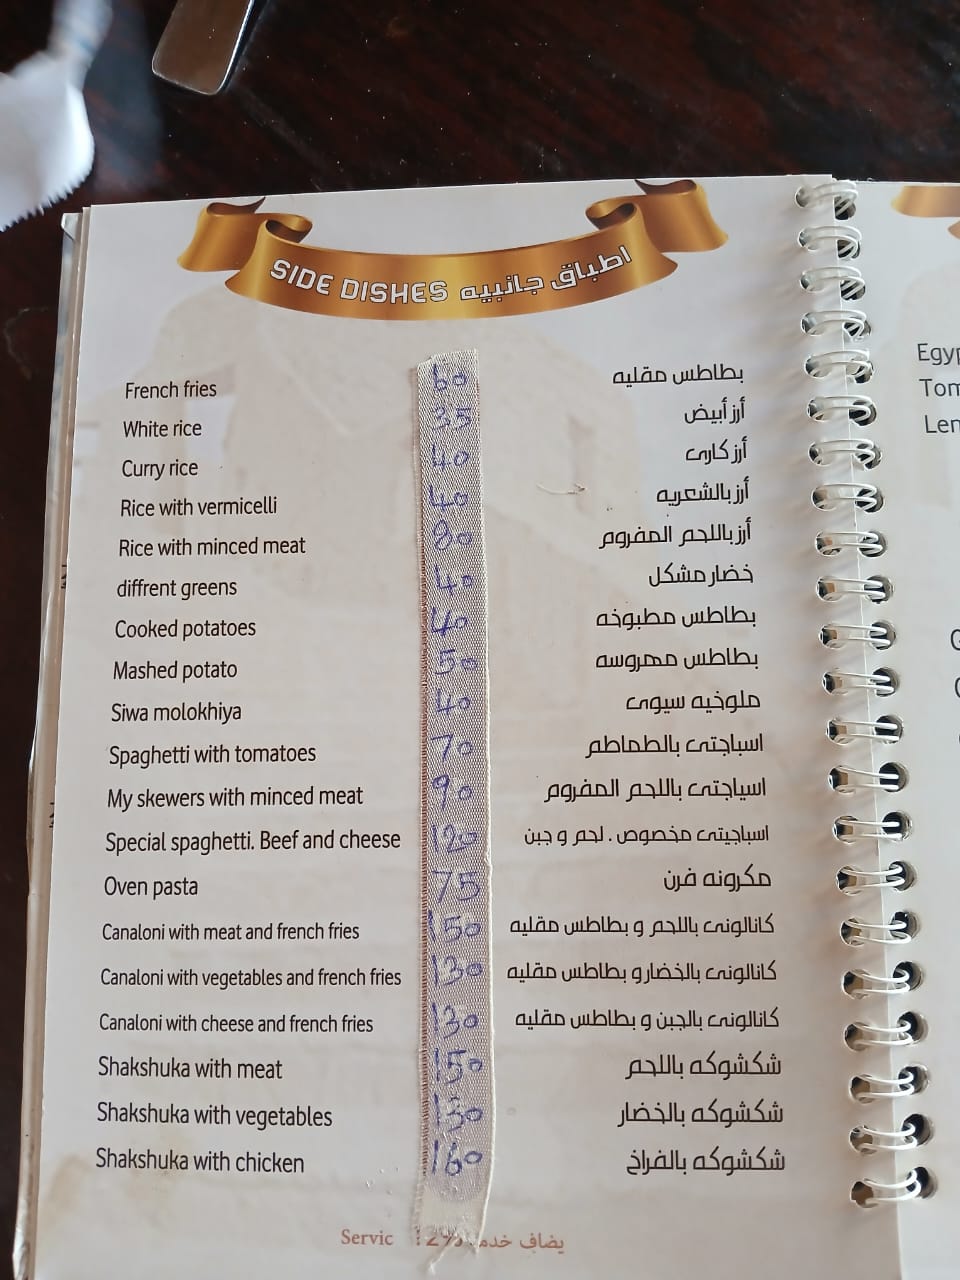 SIDE DISHES اطباق جانبيه
French fries 60 بطاطس مقليه
White rice 35 أرز أبيض
Curry rice 40 أرز كارى
Rice with vermicelli 40 أرز بالشعريه
Rice with minced meat 80 أرز باللحم المفروم
diffrent greens 40 خضار مشكل
Cooked potatoes 40 بطاطس مطبوخه
Mashed potato 50 بطاطس مهروسه
Siwa molokhiya 40 ملوخيه سيوى
Spaghetti with tomatoes 70 اسباجتى بالطماطم
My skewers with minced meat 90 اسياجتى باللحم المفروم
Special spaghetti. Beef and cheese 120 اسباجيتى مخصوص . لحم و جبن
Oven pasta 75 مكرونه فرن
Canaloni with meat and french fries 150 كانالونى باللحم و بطاطس مقليه
Canaloni with vegetables and french fries 130 كانالونى بالخضار و بطاطس مقليه
Canaloni with cheese and french fries 130 كانالونى بالجبن و بطاطس مقليه
Shakshuka with meat 150 شكشوكه باللحم
Shakshuka with vegetables 130 شكشوكه بالخضار
Shakshuka with chicken 160 شكشوكه بالفراخ
Servic 12% يضاف خدمة